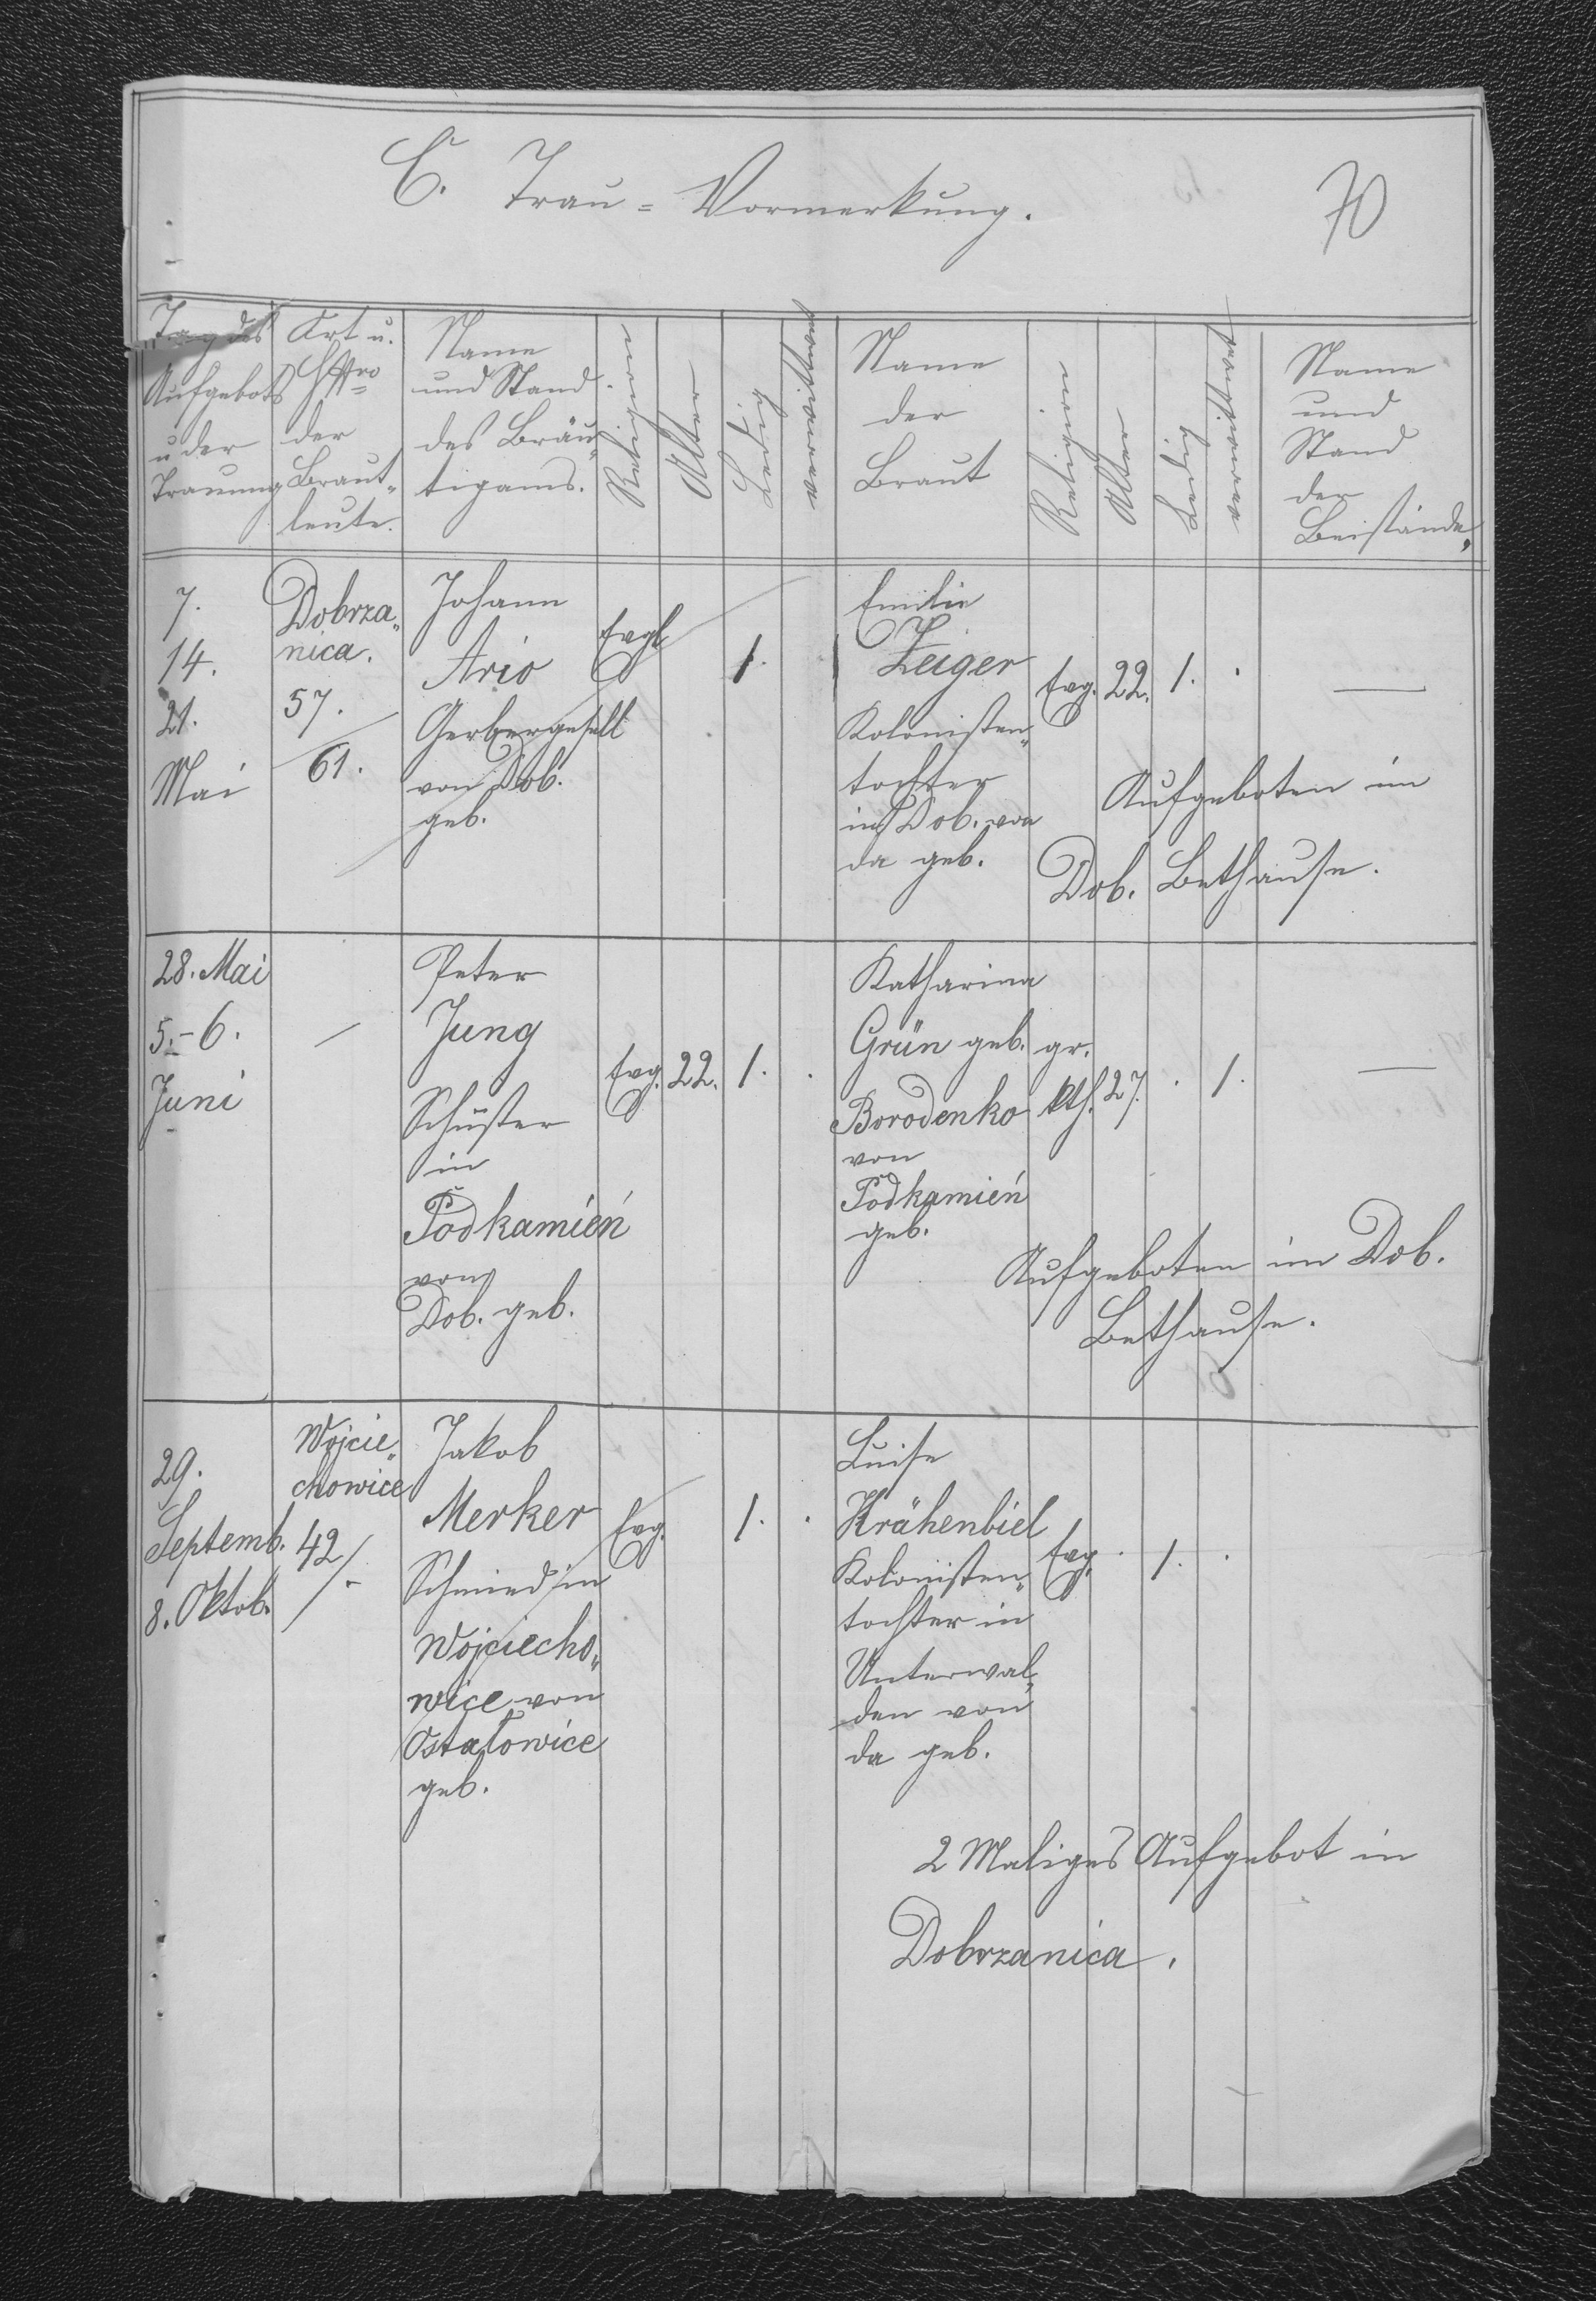 C. Trau = Vormerkung.
70
Tag des
Aufgebots
u der
Trauung
Ort u.
HNro
der
Braut„
leute.
Name
und Stand
des Bräu„
tigams.
Religion
Alter
Ledig
verwittwet
Name
der
Braut
Religion
Alter
Ledig
verwittwet
Name
und
Stand
der
Beistände.
7.
14.
21.
Mai
Dobrza„
nica.
57.
61.
Johann
Ario
Gerbergesell
von Dob.
geb.
Evgl
1.
Emilie
Zeiger
Kolonisten„
tochter
in Dob. von
da geb.
Evg.
22.
1.
.
—
Aufgeboten im
Dob. Bethause.
28. Mai
5.-6.
Juni
—
Peter
Jung
Schuster
in
Podkamień
von
Dob. geb.
Evg.
22.
1.
.
Katharina
Grün geb.
Borodenko
von
Podkamień
geb.
gr.
kth.
27.
.
1.
—
Aufgeboten im Dob.
Bethause.
29.
Septemb.
8. Oktob.
Wojcie„
chowice
42/.
Jakob
Merker
Schmied in
Wojciecho„
wice von
Ostałowice
geb.
Evg.
1.
.
Luise
Krähenbiel
Kolonisten„
tochter in
Unterwal„
den von
da geb.
Evg.
.
1.
.
2 Maliges Aufgebot in
Dobrzanica.